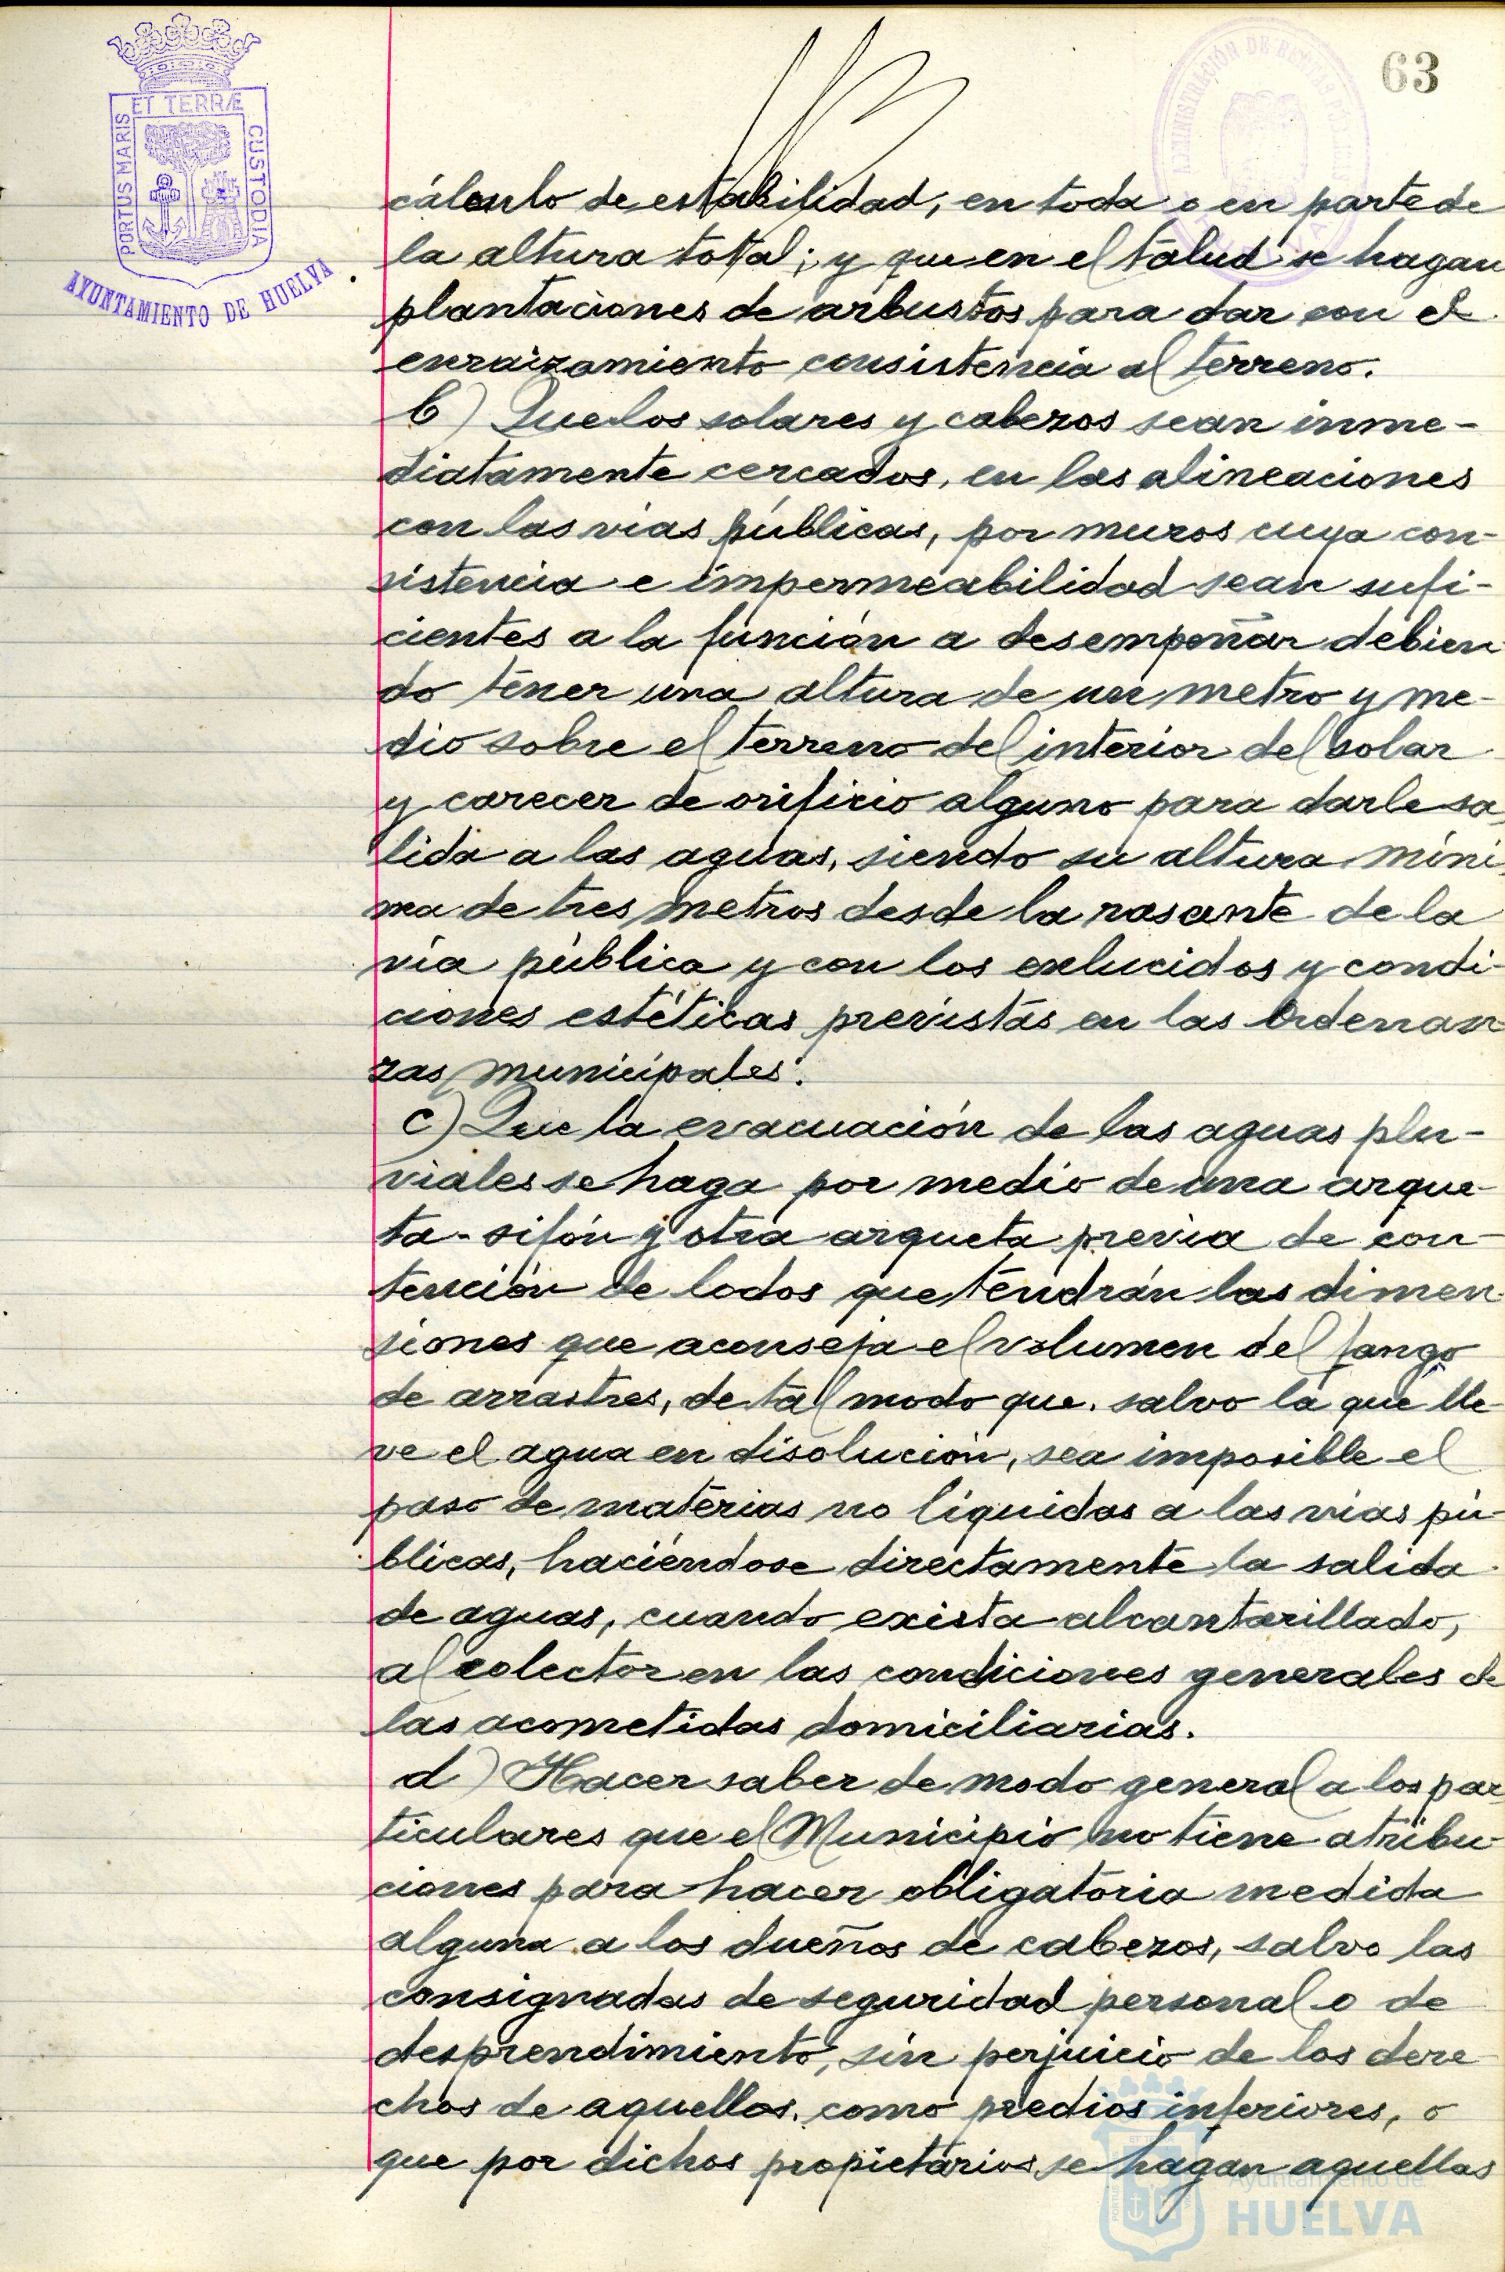 63
PORTUS MARIS ET TERRÆ CUSTODIA
AYUNTAMIENTO DE HUELVA
cálculo de estabilidad, en toda o en parte de
la altura total; y que en el talud se hagan
plantaciones de arbustos para dar con el
enraizamiento consistencia al terreno.
b) Que los solares y cabezos sean inme-
diatamente cercados, en las alineaciones
con las vías públicas, por muros cuya con-
sistencia e impermeabilidad sean sufi-
cientes a la función a desempeñar debien
do tener una altura de un metro y me-
dio sobre el terreno del interior del solar
y carecer de orificio alguno para darle sa
lida a las aguas, siendo su altura míni
ma de tres metros desde la rasante de la
vía pública y con los enlucidos y condi-
ciones estéticas previstas en las Ordenan
zas municipales.
c) Que la evacuación de las aguas plu-
viales se haga por medio de una arque-
ta-sifón y otra arqueta previa de con-
tención de lodos que tendrán las dimen-
siones que aconseja el volumen del fango
de arrastres, de tal modo que, salvo la que lle-
ve el agua en disolución, sea imposible el
paso de materias no líquidas a las vías pú-
blicas, haciéndose directamente la salida
de aguas, cuando exista alcantarillado,
al colector en las condiciones generales de
las acometidas domiciliarias.
d) Hacer saber de modo general a los par
ticulares que el Municipio no tiene atribu-
ciones para hacer obligatoria medida
alguna a los dueños de cabezos, salvo las
consignadas de seguridad personal o de
desprendimiento, sin perjuicio de los dere-
chos de aquellos, como predios inferiores, o
que por dichos propietarios se hagan aquellas
Ayuntamiento de
HUELVA